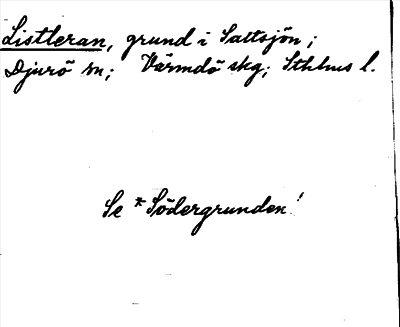 Listleran, grund i Saltsjön;
Djurö sn; Värmdö skg; Sthlms l.
Se *Södergrunden!